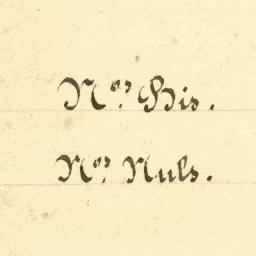 Nos. Bis.
Nos. Nuls.